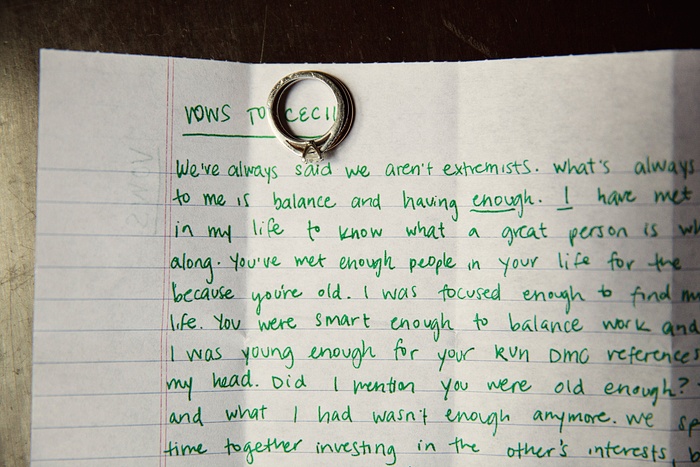 VOWS TO CECIL
We've always said we aren't extremists. What's always
to me is balance and having enough. I have met
in my life to know what a great person is
along. You've met enough people in your life for the
because you're old. I was focused enough to find
life. You were smart enough to balance work and
I was young enough for your RUN DMC references
my head. Did I mention you were old enough?
and what I had wasn't enough anymore. We
time together investing in the other's interests,